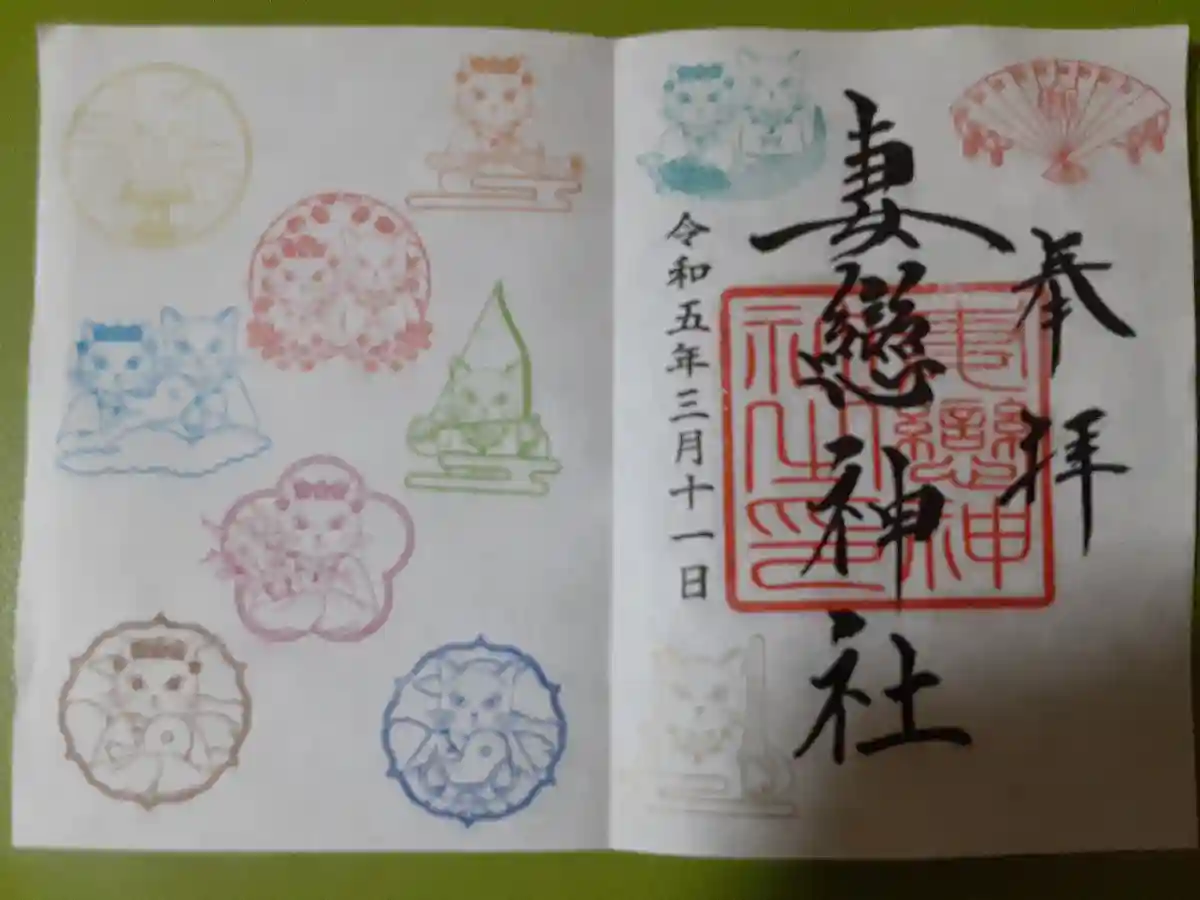 奉拝
妻戀神社
妻戀神社之印
令和五年三月十一日